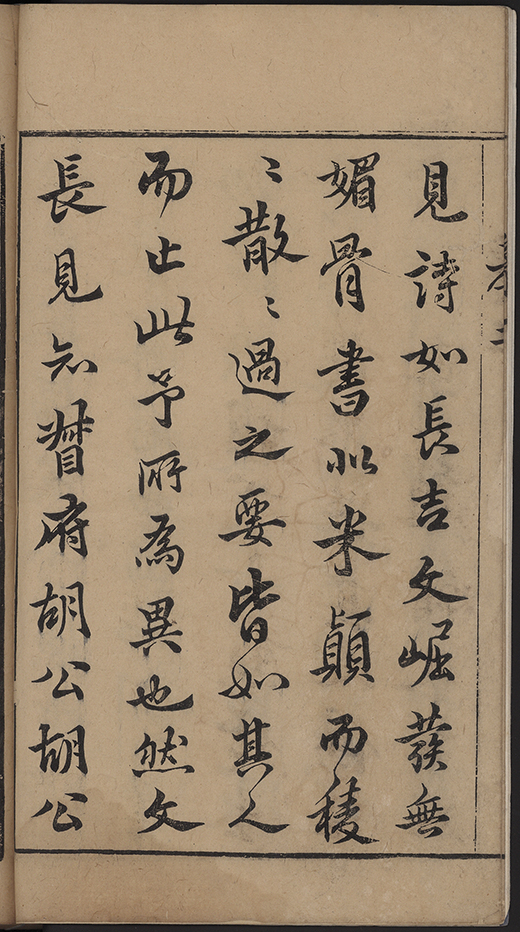 見詩如長吉文崛發無
媚骨書似米顛而稜
〻散〻過之要皆如其人
而止此予所為異也然文
長見知督府胡公胡公